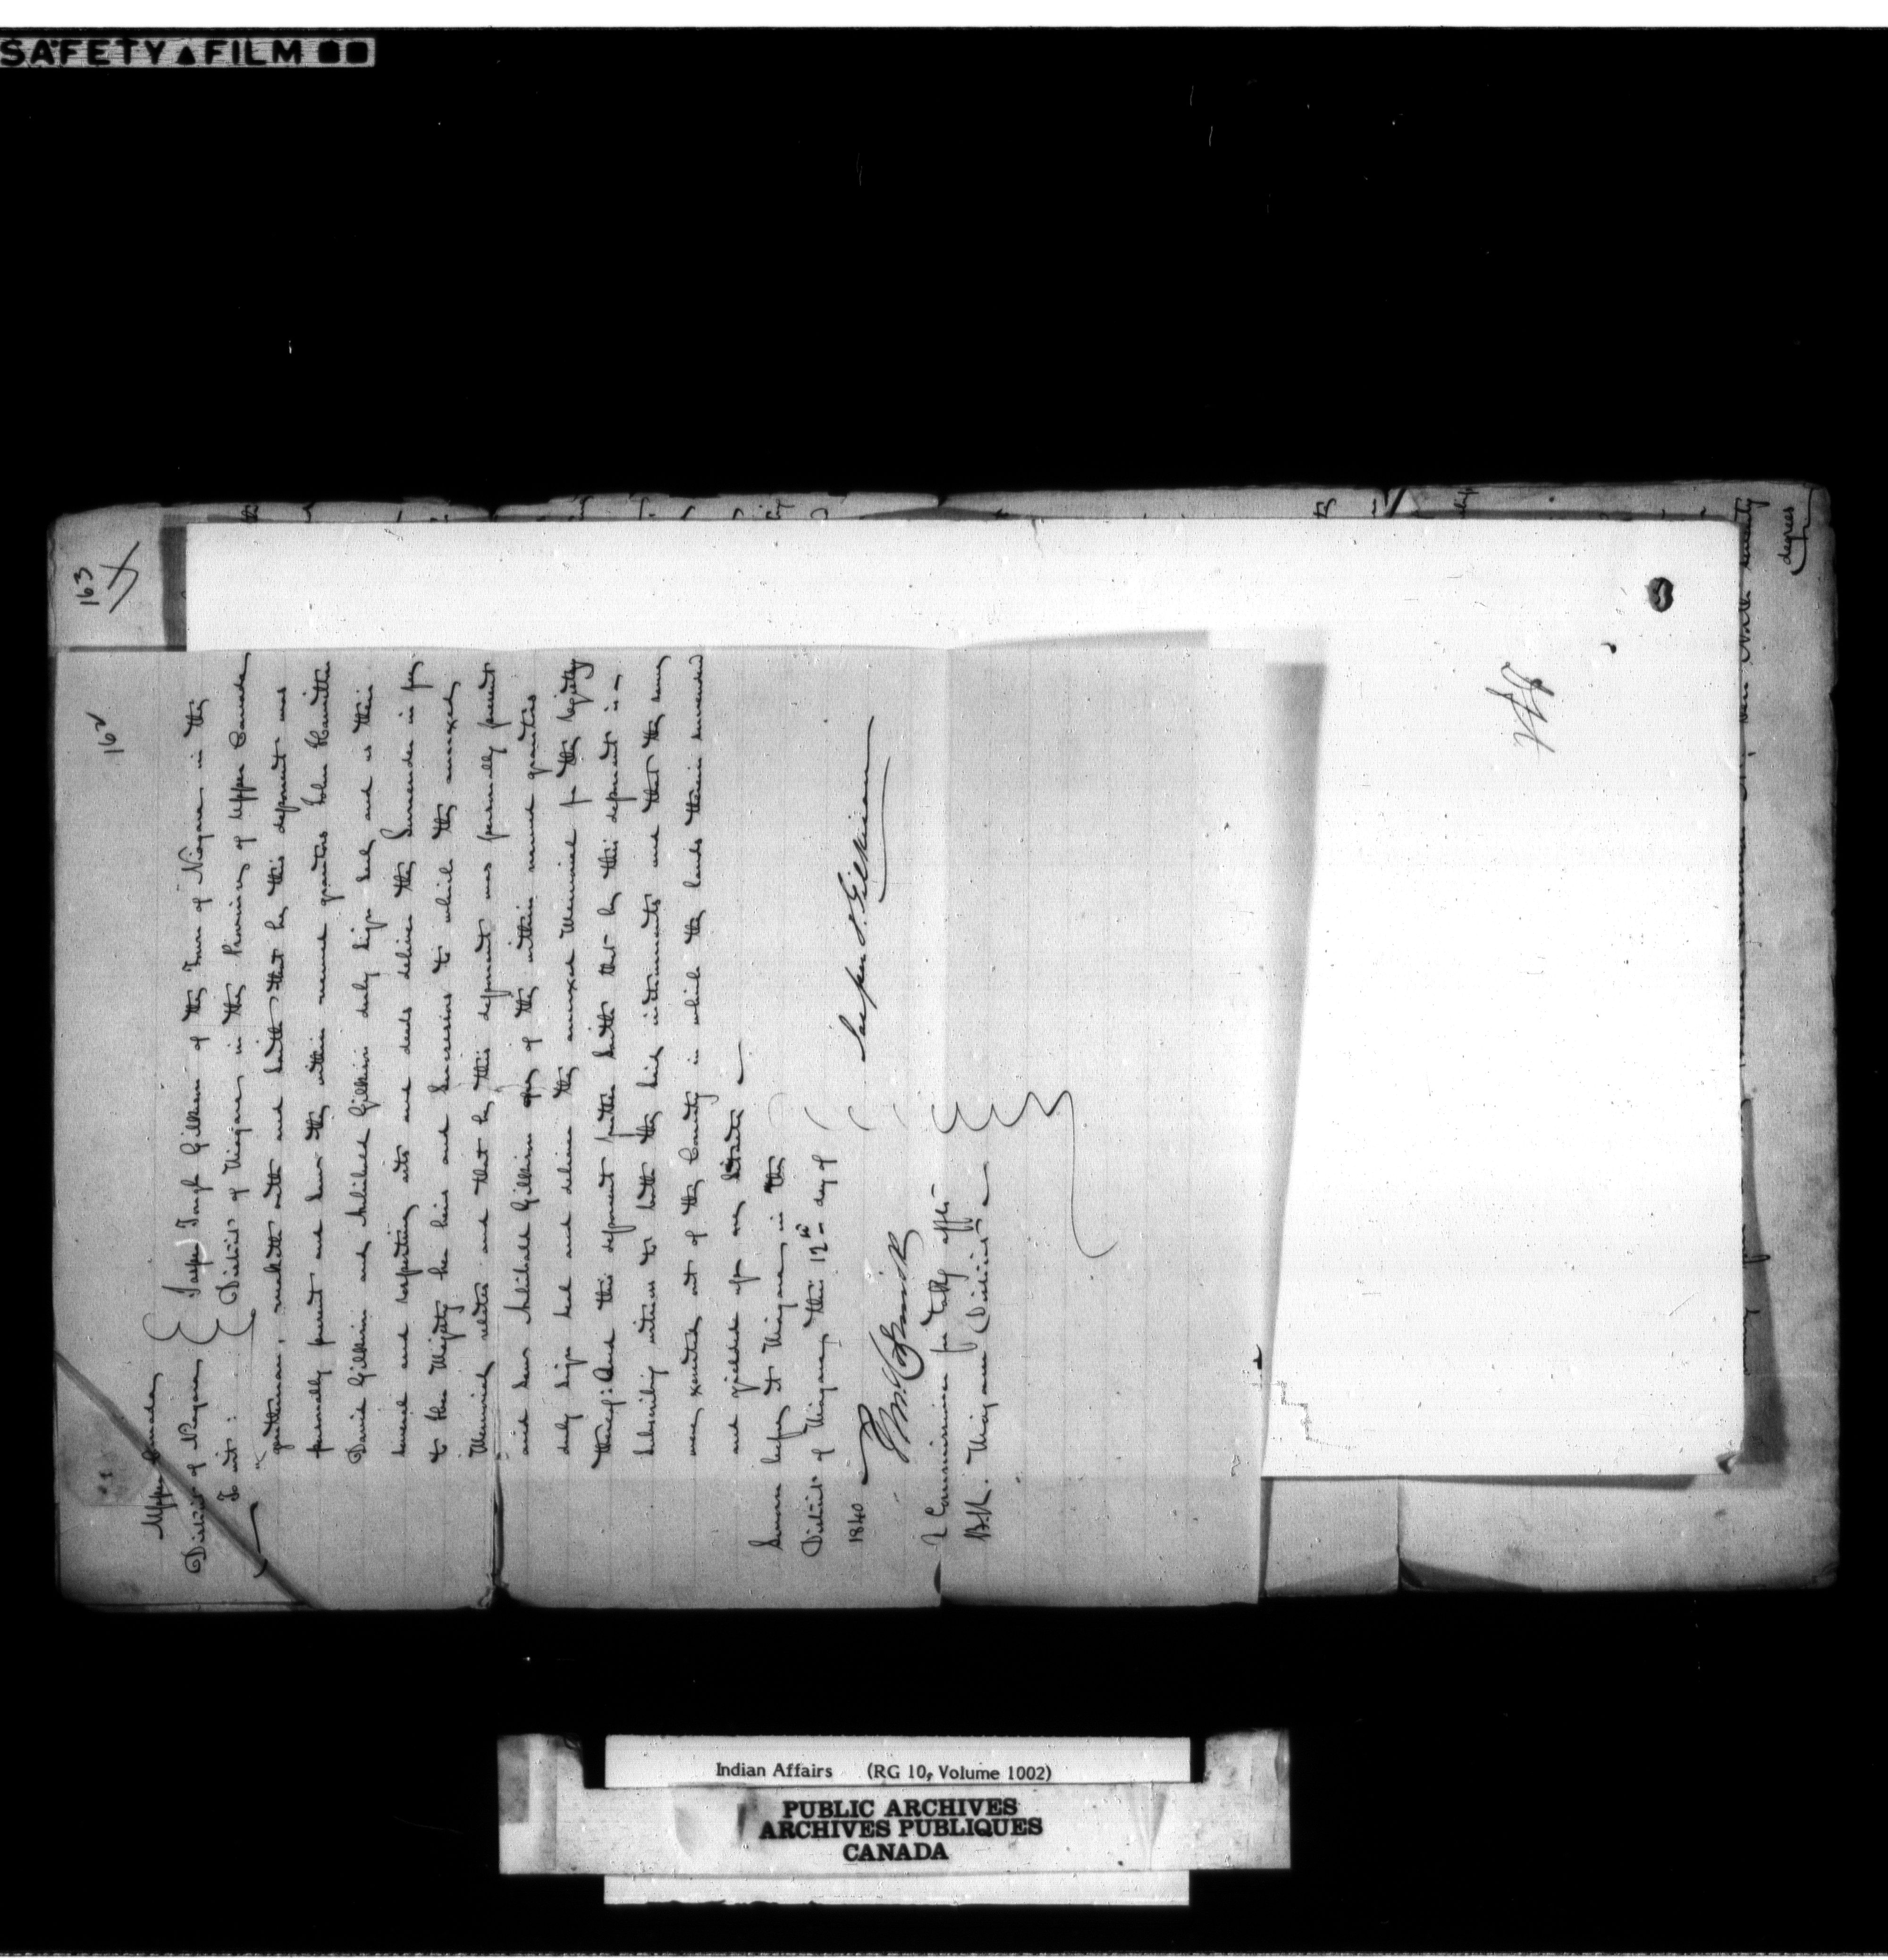 SAFETY FILM
163
162
Upper Canada
District of Niagara
To wit:
Jasper Tough Gilkison of the Town of Niagara in the
District of Niagara in the Province of Upper Canada
gentleman, maketh oath and saith that he this deponent was
personally present and saw the within named grantors John Hamilton
David Gilkison and Archibald Gilkison duly sign seal and as their
several and respective acts and deeds deliver the Surrender in fee
to Her Majesty her heirs and Successors to which the annexed
Memorial relates and that he this deponent was personally present
and saw Archibald Gilkison one of the within named grantors
duly sign seal and deliver the annexed Memorial for the registry
thereof: And this deponent further saith that he this deponent is a
subscribing witness to both the said instruments and that the same
were executed out of the County in which the lands therein surrendered
and yielded up are situate
Sworn before at Niagara in the
District of Niagara this 12th day of
1840
Jasper T. Gilkison
A Commissioner for taking affts
B.R. Niagara District
degrees
Indian Affairs (RG 10, Volume 1002)
PUBLIC ARCHIVES
ARCHIVES PUBLIQUES
CANADA